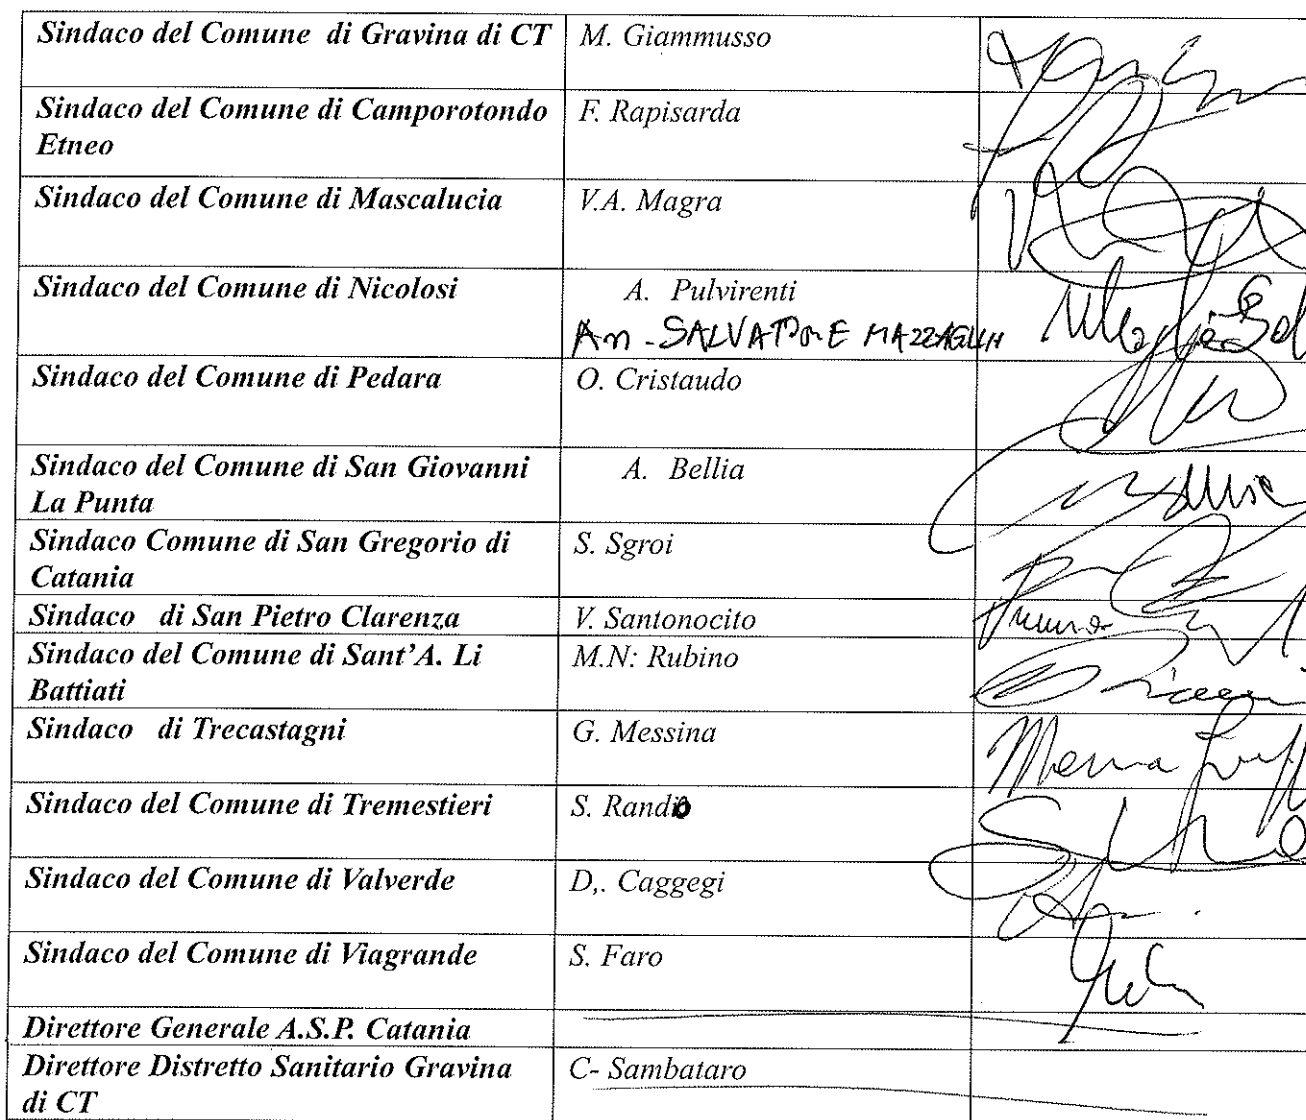 Sindaco del Comune di Gravina di CT M. Giammusso
Sindaco del Comune di Camporotondo F. Rapisarda
Etneo
Sindaco del Comune di Mascalucia V.A. Magra
Sindaco del Comune di Nicolosi A. Pulvirenti
SALVATORE MAZZAGLIA
Sindaco del Comune di Pedara O. Cristaudo
Sindaco del Comune di San Giovanni A. Bellia
La Punta
Sindaco Comune di San Gregorio di S. Sgroi
Catania
Sindaco di San Pietro Clarenza V. Santonocito
Sindaco del Comune di Sant'A. Li M.N: Rubino
Battiati
Sindaco di Trecastagni G. Messina
Sindaco del Comune di Tremestieri S. Rando
Sindaco del Comune di Valverde D,. Caggegi
Sindaco del Comune di Viagrande S. Faro
Direttore Generale A.S.P. Catania
Direttore Distretto Sanitario Gravina C- Sambataro
di CT